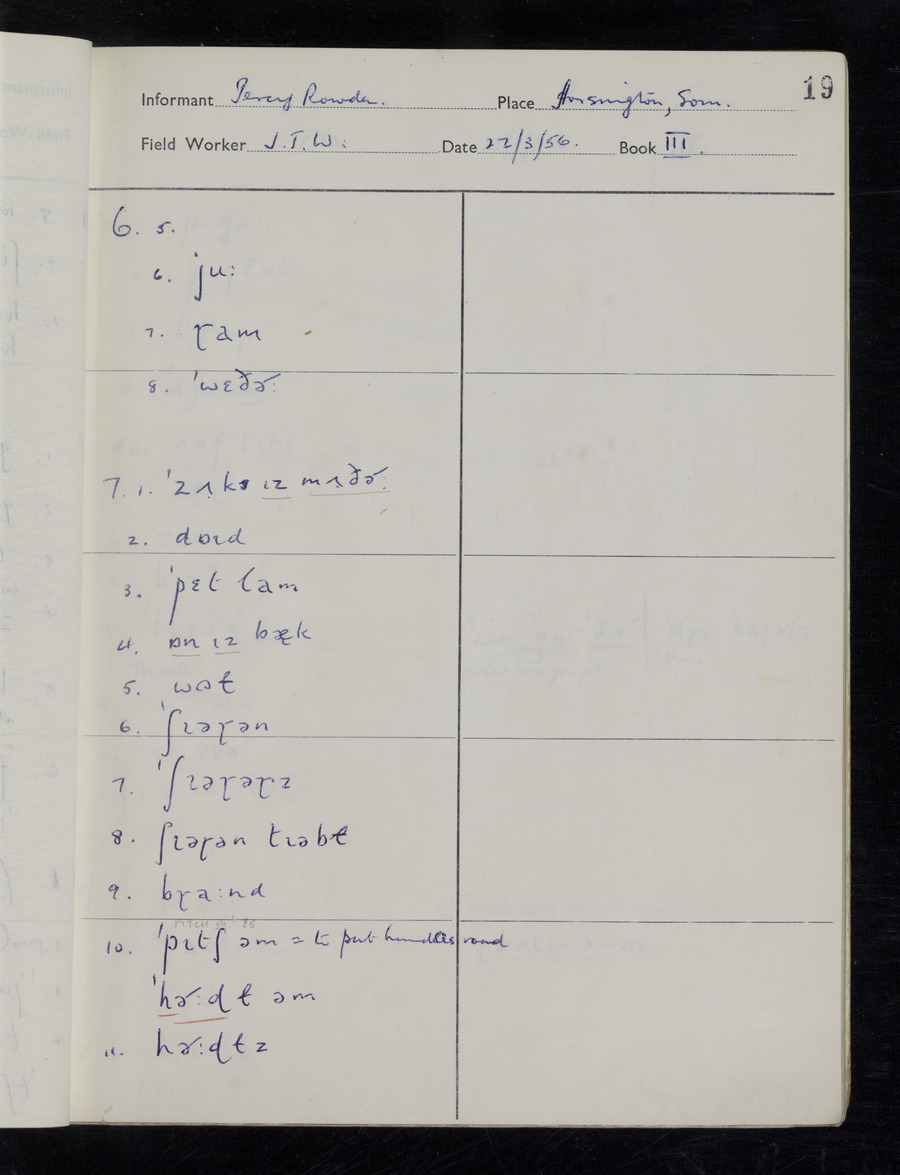 19
Informant Percy Rowden. Place Horsington, Som.
Field Worker J.T.W. Date 22/3/56. Book III.
6. 5.
6. ˈjuː
7. ɽam
8. ˈwɛðɚː
7. 1. ˈzʌks ɪz mʌðɚː
2. dɒɪd
3. ˈpɛt lam
4. ɒn ɪz bæk
5. wɒɫ
6. ˈʃɪəɽən
7. ˈʃɪəɽəɽz
8. ʃɪəɽən tɪəbɫ
9. bɽaːnd
10. ˈpɪtʃ əm = to put hurdles round
ˈhɚːdɫ əm
11. hɚːdɫz